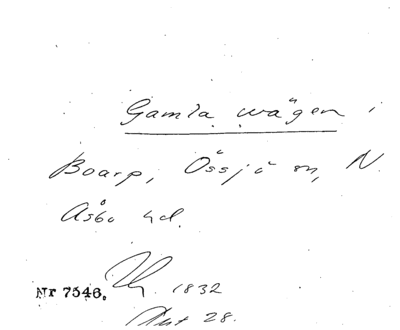 Gamla wägen i
Boarp, Össjö sn, N.
Åsbo hd.
Nr 7546. 1832
Akt 28.